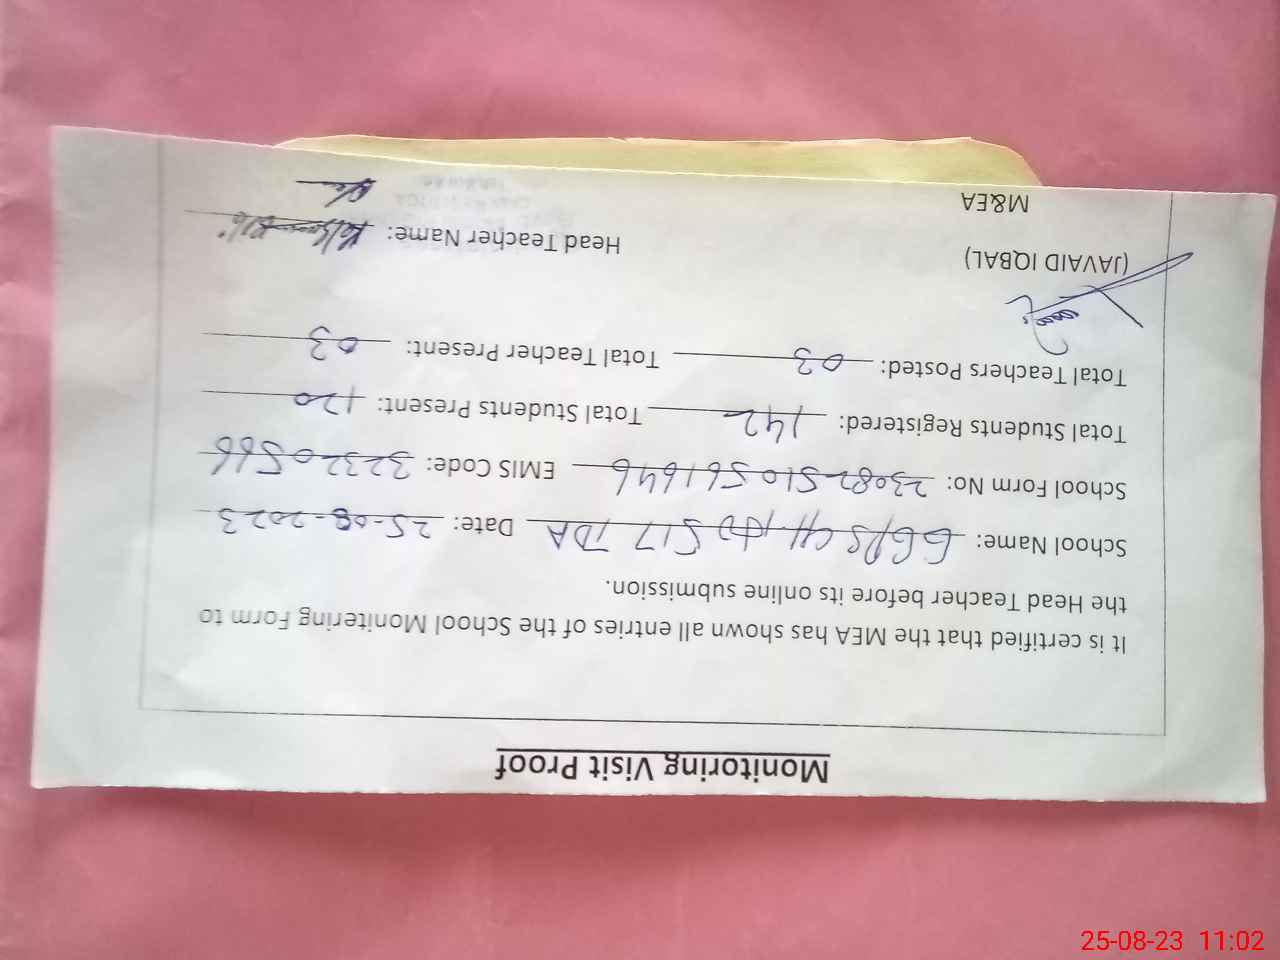 Monitoring Visit Proof
It is certified that the MEA has shown all entries of the School Monitoring Form to
the Head Teacher before its online submission.
School Name: GGPS CH 517 TDA Date: 25-08-2023
School Form No: EMIS Code: 32320566
Total Students Registered: 142 Total Students Present: 120
Total Teachers Posted: 03 Total Teacher Present: 03
(JAVAID IQBAL) Head Teacher Name:
M&EA
25-08-23 11:02